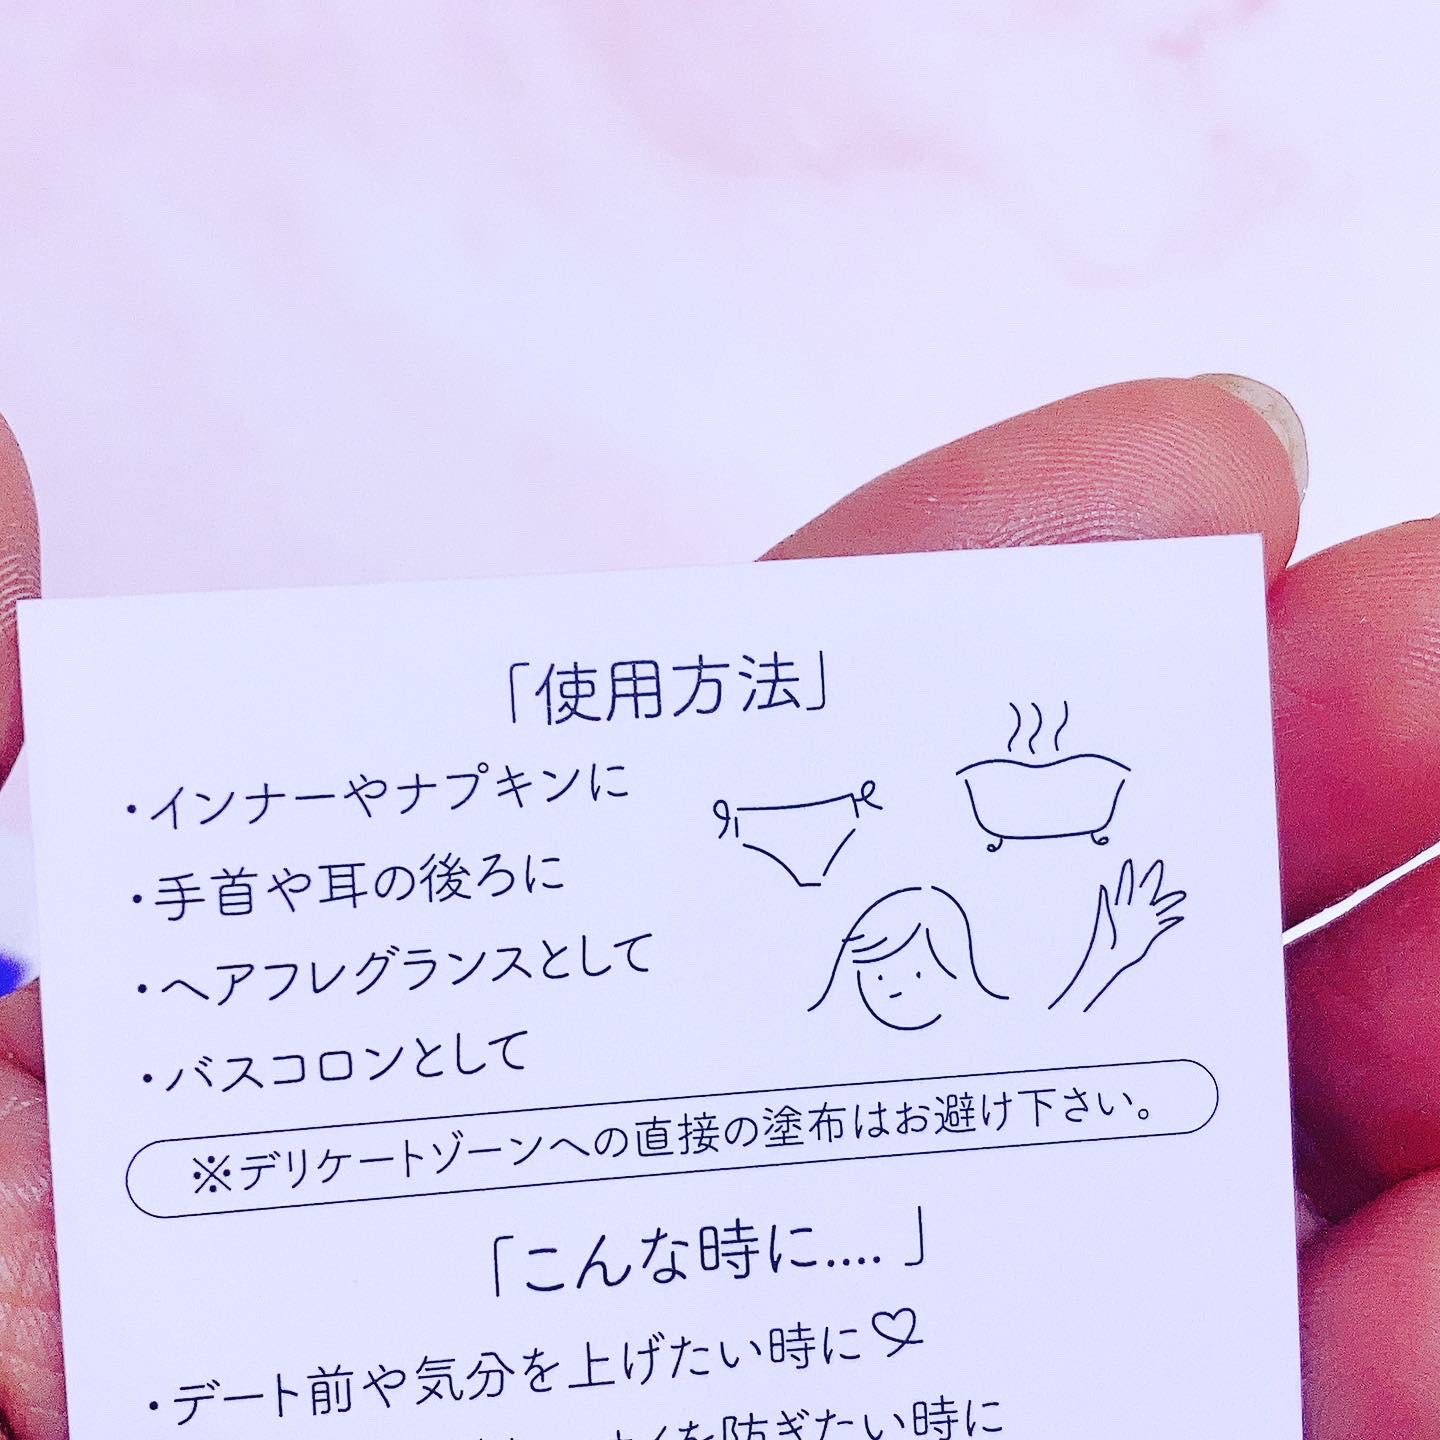 「使用方法」
・インナーやナプキンに
・手首や耳の後ろに
・ヘアフレグランスとして
・バスコロンとして
※デリケートゾーンへの直接の塗布はお避け下さい。
「こんな時に....」
・デート前や気分を上げたい時に♡
を防ぎたい時に